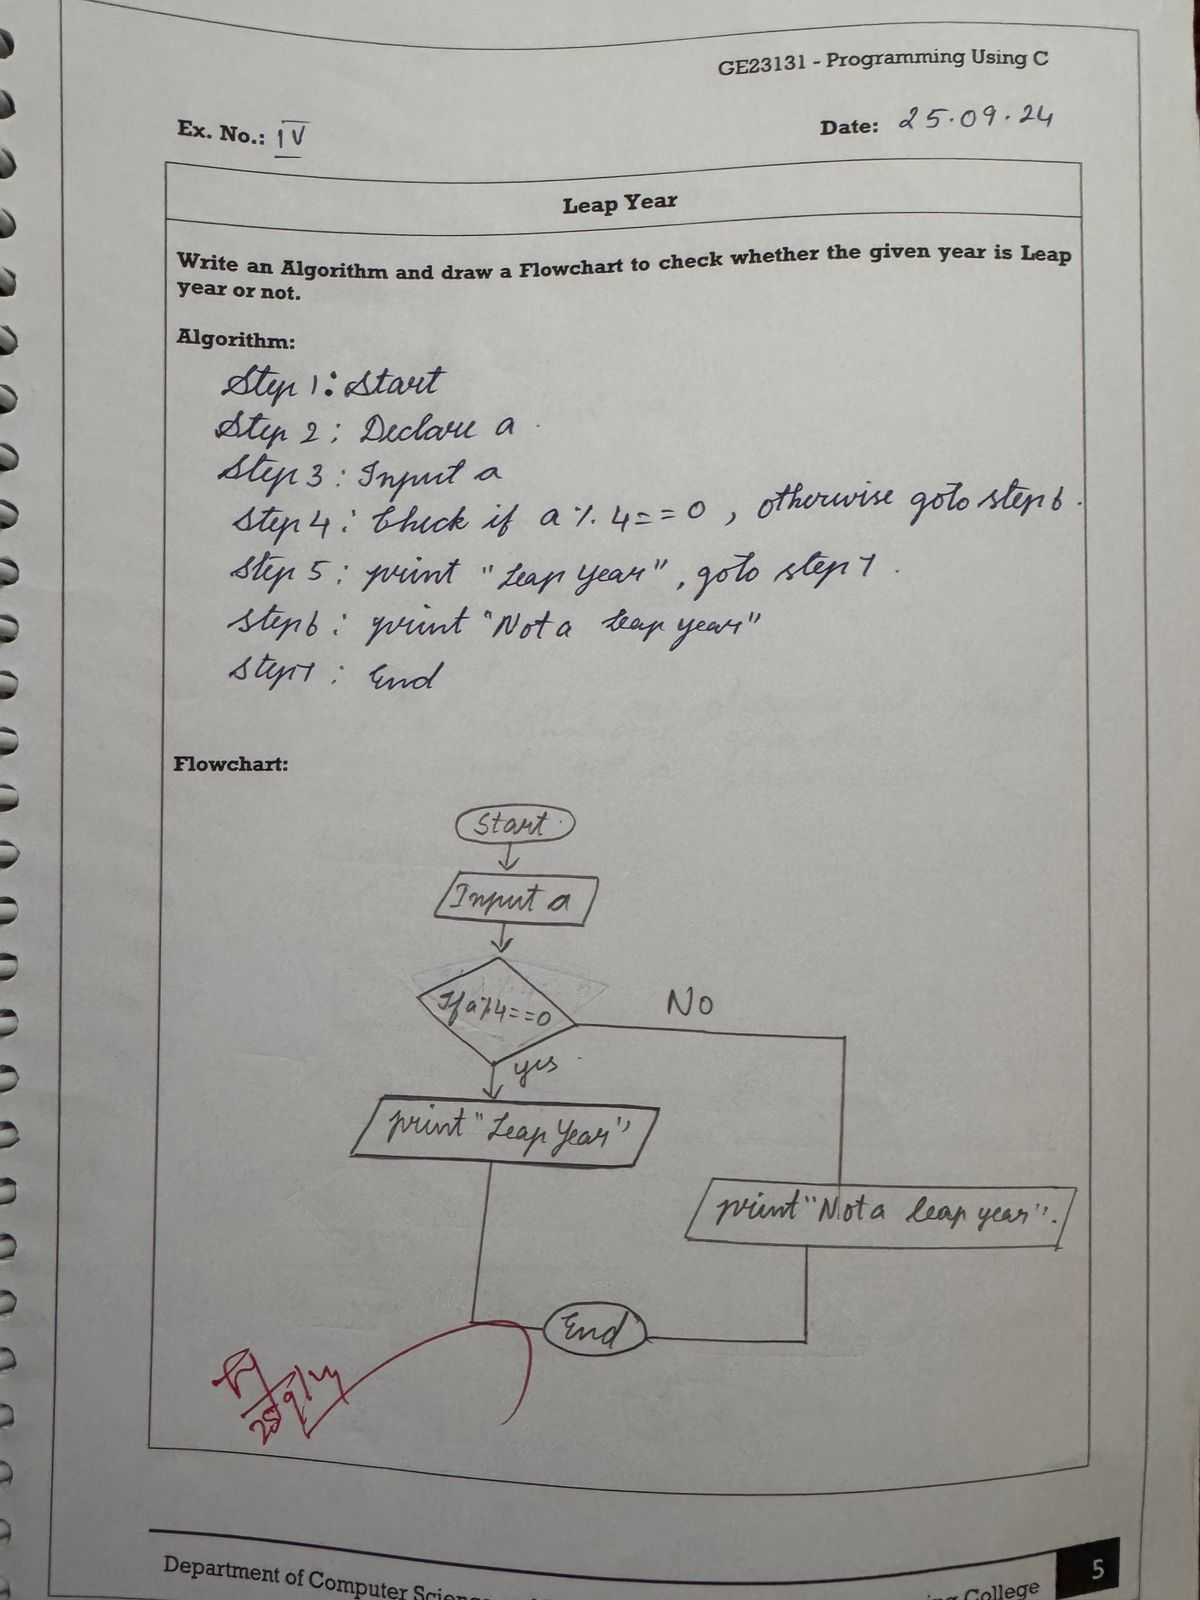 GE23131 - Programming Using C
Ex. No.: IV
Date: 25.09.24
Leap Year
Write an Algorithm and draw a Flowchart to check whether the given year is Leap
year or not.
Algorithm:
Step 1: Start
Step 2: Declare a.
Step 3: Input a
Step 4: Check if a % 4==0, otherwise goto step 6.
Step 5: print "Leap Year", goto step 7.
Step 6: print "Not a leap year"
Step 7: End
Flowchart:
Start
Input a
If a%4==0
No
yes
print "Leap Year"
print "Not a leap year".
End
25/9/24
Department of Computer
College
5